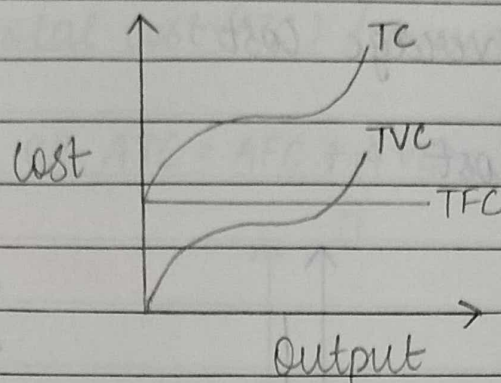 TC
TVC
Cost
TFC
Output